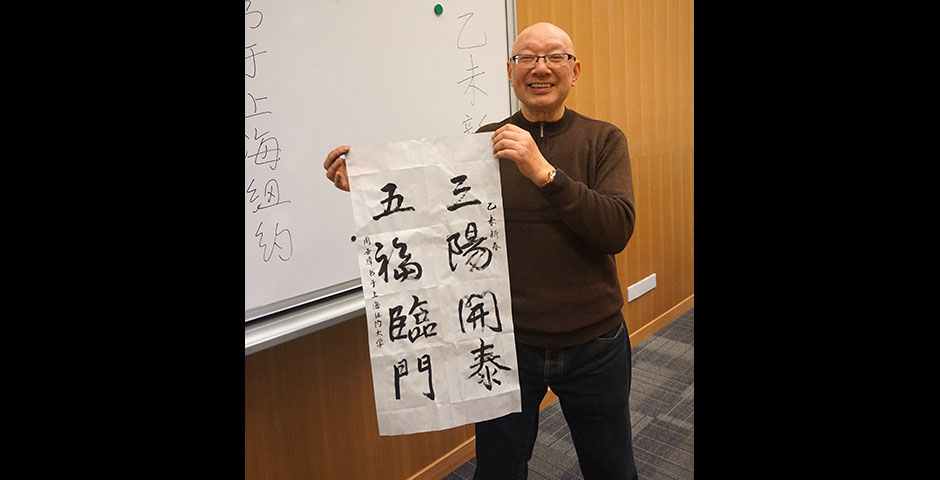 乙未新
于上海纽约
乙未新春
三陽開泰
五福臨門
书于上海纽约大学